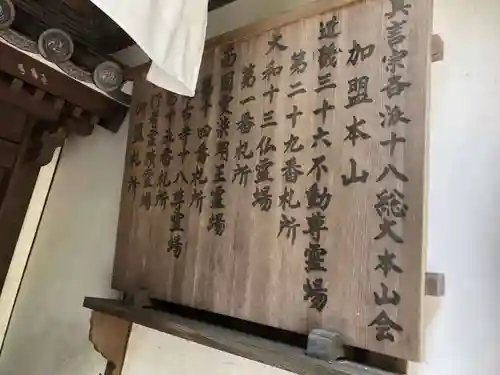 真言宗各派十八総大本山会
加盟本山
近畿三十六不動尊霊場
第二十九番札所
大和十三仏霊場
第一番札所
西国愛染明王霊場
第十四番札所
十八尊霊場
札所